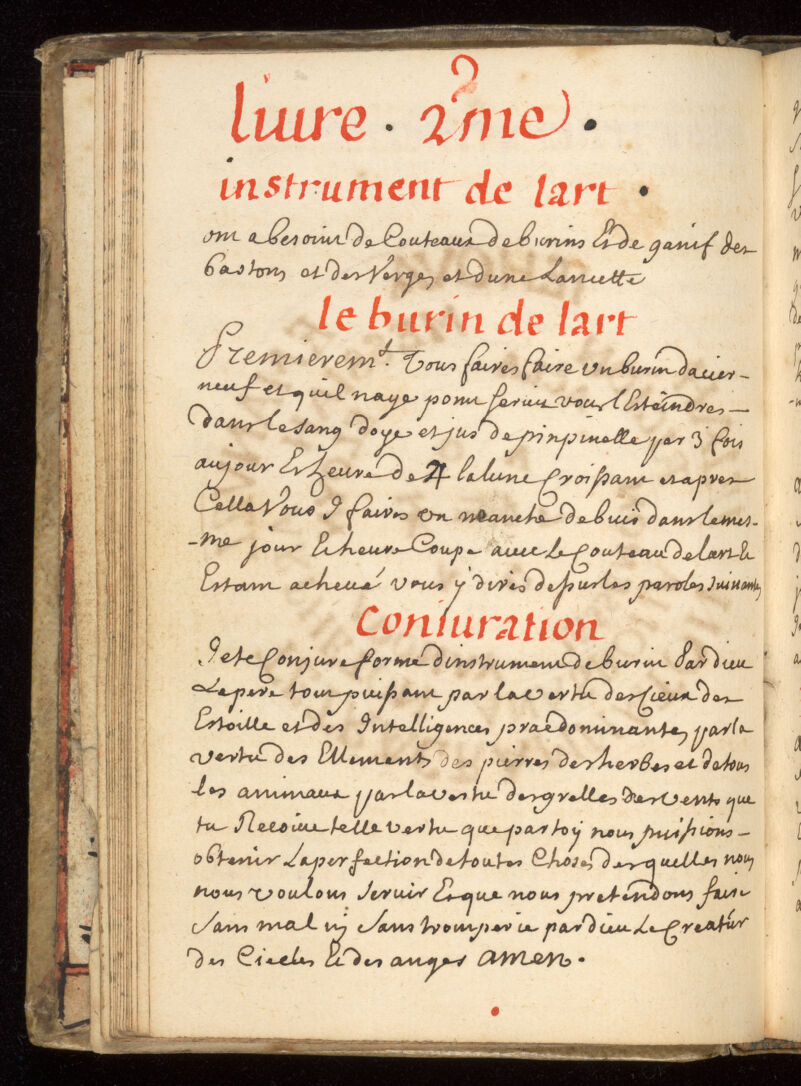 liure · 2me ·
instrument de lart ·
on a besoint de Couteaux de burins Et de ganif des
bastons et des Verges et dune Lancette
le burin de lart
Premieremt. Vous faires faire un burin dacier
neuf et quil naye point servit vous lEsteindres
dans le sang doye et jus de pinpinelle par 3 fois
au jour Et heure de ♃ la lune Croissant et apres
Cella Vous J faires un manche de buis dans le mes-
-me jour Et heure Coupé avec Le Couteau de lart Et
Estant achevé vous y dires dessus les paroles suivantes
Coniuration
Je te Conjure forme dinstrument de burin Par dieu
Le pere tout puissant par la vertu des Cieux des
Estoille et des Intelligences praedominantes par la
vertu des Ellements des pierres des herbes et de tous
les animaux par la vertu des grelles des vents que
tu Recoive telle vertu que par toy nous puissions
obtenir La perfection de toutes Choses desquelles nous
nous voulons servir Et que nous pretendons faire
sans mal ny sans tromperie par dieu Le Creatur
des Ciecles Et des anges amen.